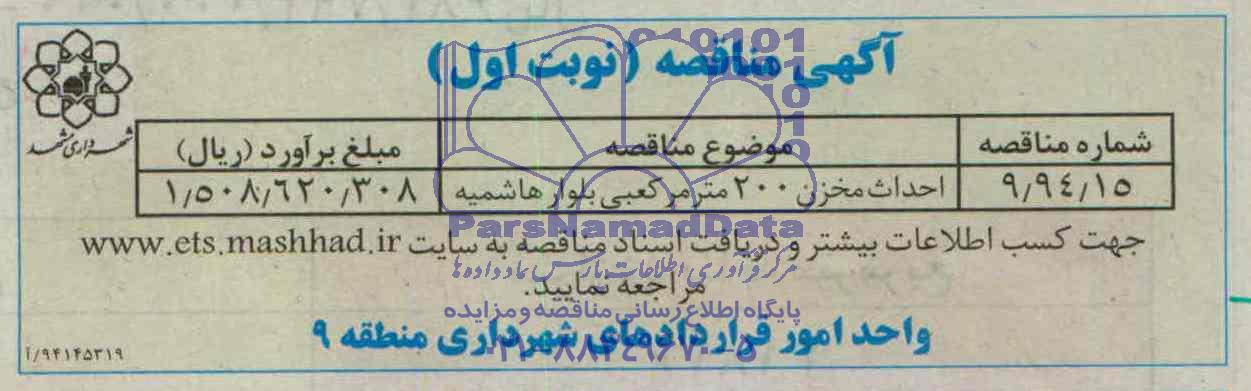 آگهی مناقصه (نوبت اول)
شهرداری مشهد
شماره مناقصه موضوع مناقصه مبلغ برآورد (ریال)
۹/۹٤/۱٥ احداث مخزن ۲۰۰ متر مرکعبی بلوار هاشمیه ۱/٥۰۸/٦۲۰/۳۰۸
جهت کسب اطلاعات بیشتر و دریافت اسناد مناقصه به سایت www.ets.mashhad.ir
مراجعه نمایید.
واحد امور قراردادهای شهرداری منطقه ۹
۹۴۱۴۵۳۱۹/آ
ParsNamadData
مرکز فرآوری اطلاعات پارس نماد داده ها
پایگاه اطلاع رسانی مناقصه و مزایده